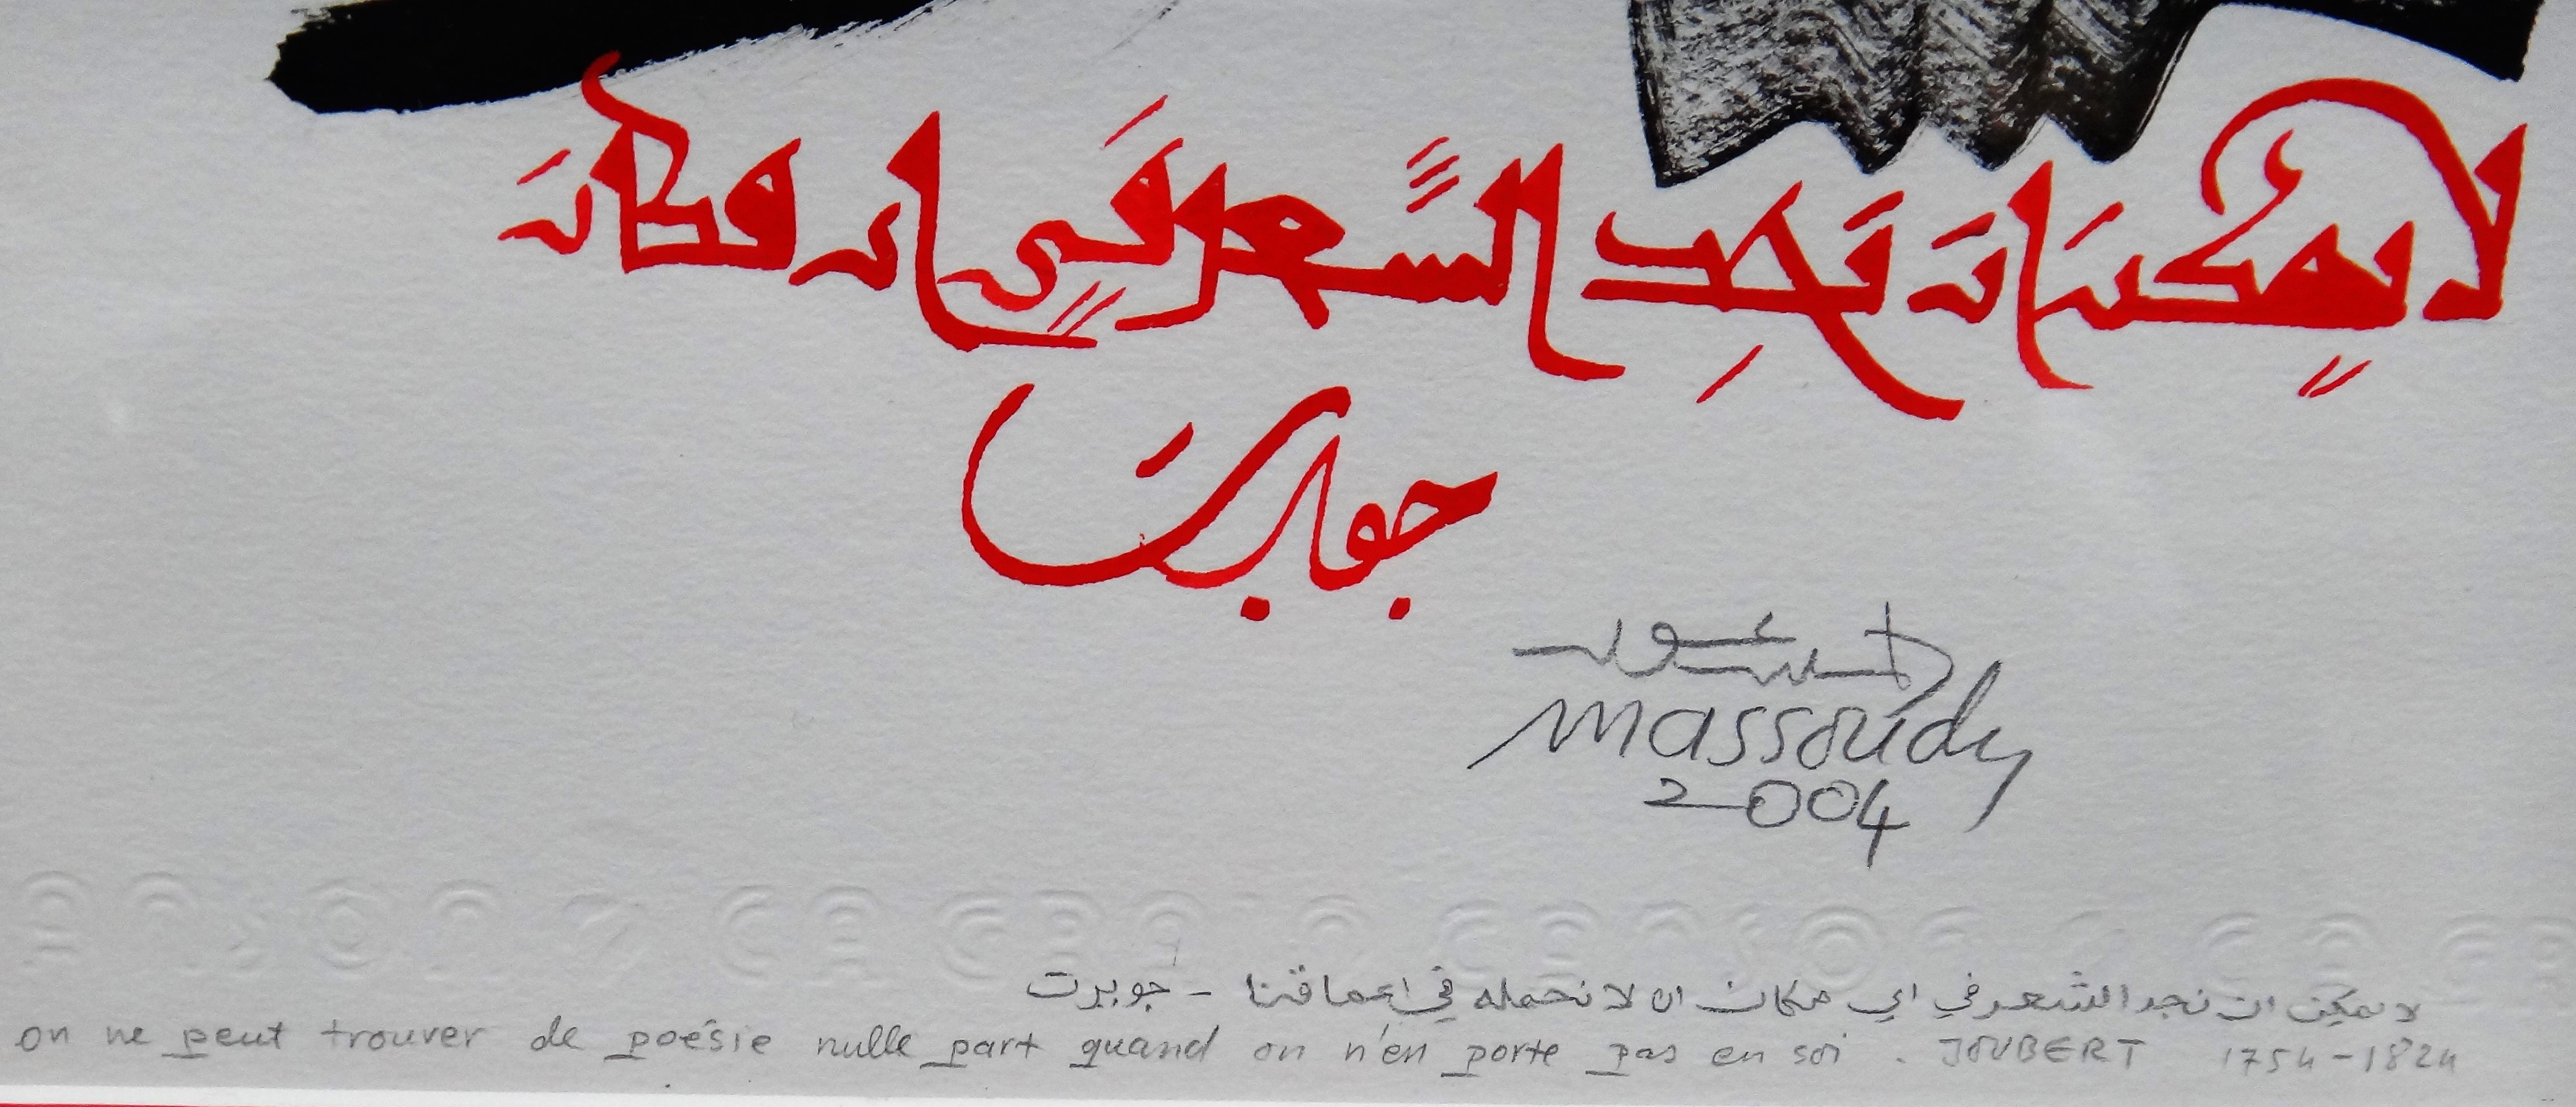 لا يمكن ان نجد الشعر في اي مكان
جوبرت
مسعود
massoudy
2004
لا يمكن ان نجد الشعر في اي مكان ان لا نحمله في اعماقنا - جوبرت
on ne peut trouver de poésie nulle part quand on n'en porte pas en soi . JOUBERT 1754-1824